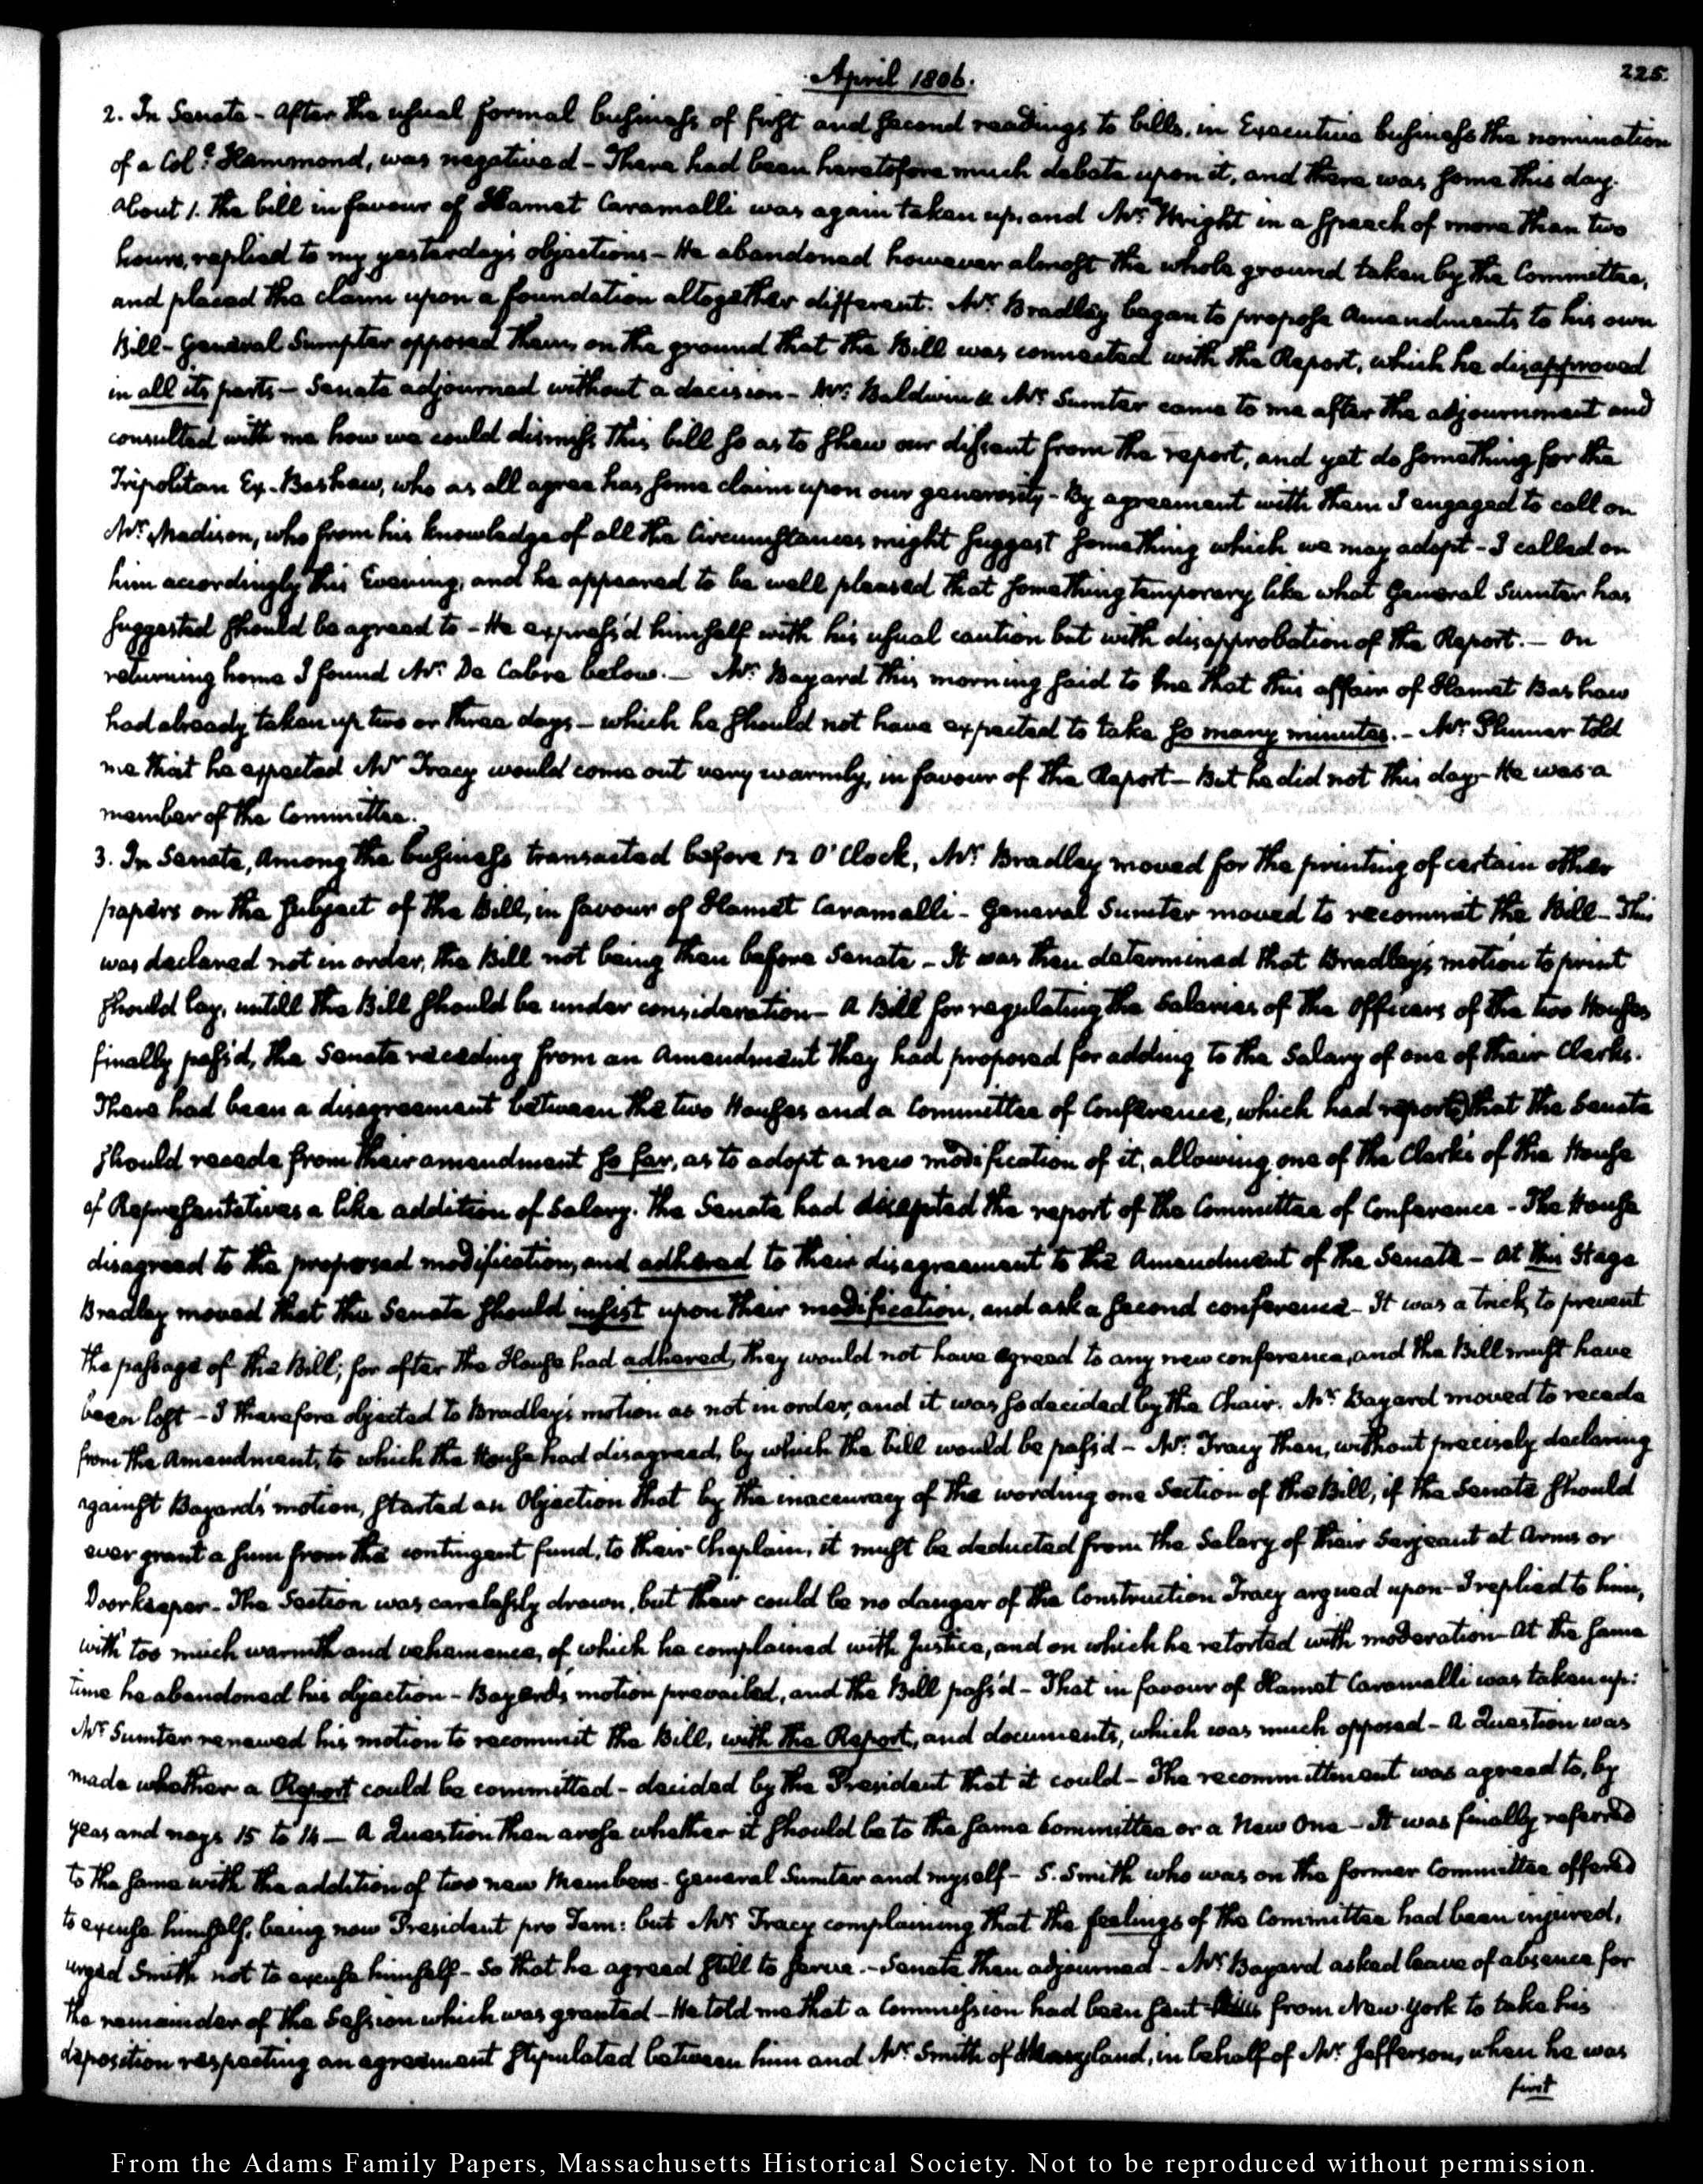 April 1806.
225.
2. In Senate - After the usual formal business of first and second readings to bills, in Executive business the nomination
of a Col.¹ Hammond, was negatived - There had been heretofore much debate upon it, and there was some this day.
About 1. the bill in favour of Hamet Caramalli was again taken up, and Mr. Wright in a speech of more than two
hours, replied to my yesterday's objections - He abandoned however almost the whole ground taken by the Committee,
and placed the claim upon a foundation altogether different. Mr. Bradley began to propose Amendments to his own
Bill - General Sumpter opposed them, on the ground that the Bill was connected with the Report, which he disapproved
in all its parts - Senate adjourned without a decision - Mr. Baldwin & Mr. Sumter came to me after the adjournment and
consulted with me how we could dismiss this bill so as to shew our dissent from the report, and yet do something for the
Tripolitan Ex-Bashaw, who as all agree has some claim upon our generosity - By agreement with them I engaged to call on
Mr. Madison, who from his knowledge of all the Circumstances might suggest something which we may adopt - I called on
him accordingly this Evening, and he appeared to be well pleased that something temporary like what General Sumter has
suggested should be agreed to - He express'd himself with his usual caution but with disapprobation of the Report. - On
returning home I found Mr. De Cabre below. - Mr. Bayard this morning said to me that this affair of Hamet Bashaw
had already taken up two or three days - which he should not have expected to take so many minutes. - Mr. Plumer told
me that he expected Mr. Tracy would come out very warmly, in favour of the Report - But he did not this day - He was a
member of the Committee.
3. In Senate, Among the business transacted before 12 O'Clock, Mr. Bradley moved for the printing of certain other
papers on the subject of the Bill, in favour of Hamet Caramalli - General Sumter moved to recommit the Bill - This
was declared not in order, the Bill not being then before Senate - It was then determined that Bradley's motion to print
should lay, untill the Bill should be under consideration - A Bill for regulating the Salaries of the Officers of the two Houses
finally pass'd, the Senate receding from an Amendment they had proposed for adding to the Salary of one of their Clerks.
There had been a disagreement between the two Houses and a Committee of Conference, which had reported that the Senate
should recede from their amendment so far, as to adopt a new modification of it, allowing one of the Clerks of the House
of Representatives a like addition of Salary. The Senate had accepted the report of the Committee of Conference - The House
disagreed to the proposed modification, and adhered to their disagreement to the Amendment of the Senate - At this Stage
Bradley moved that the Senate should insist upon their modification, and ask a second conference - It was a trick, to prevent
the passage of the Bill; for after the House had adhered, they would not have agreed to any new conference, and the Bill must have
been lost - I therefore objected to Bradley's motion as not in order, and it was so decided by the Chair. Mr. Bayard moved to recede
from the Amendment, to which the House had disagreed, by which the bill would be pass'd - Mr. Tracy then, without precisely declaring
against Bayard's motion, started an Objection that by the inaccuracy of the wording one Section of the Bill, if the Senate should
ever grant a sum from the contingent fund, to their Chaplain, it must be deducted from the Salary of their Serjeant at Arms or
Doorkeeper - The Section was carelessly drawn, but there could be no danger of the Construction Tracy argued upon - I replied to him,
with too much warmth and vehemence, of which he complained with Justice, and on which he retorted with moderation - At the same
time he abandoned his objection - Bayard's motion prevailed, and the Bill pass'd - That in favour of Hamet Caramalli was taken up:
Mr. Sumter renewed his motion to recommit the Bill, with the Report, and documents, which was much opposed - A Question was
made whether a Report could be committed - decided by the President that it could - The recommittment was agreed to, by
yeas and nays 15 to 14 - A Question then arose whether it should be to the same Committee or a New One - It was finally referred
to the same with the addition of two new Members - General Sumter and myself - S. Smith who was on the former Committee offered
to excuse himself, being now President pro Tem: but Mr. Tracy complaining that the feelings of the Committee had been injured,
urged Smith not to excuse himself - So that he agreed still to serve. - Senate then adjourned - Mr. Bayard asked leave of absence for
the remainder of the Session which was granted - He told me that a Commission had been sent from New-York to take his
deposition respecting an agreement stipulated between him and Mr. Smith of Maryland, in behalf of Mr. Jefferson, when he was
first
From the Adams Family Papers, Massachusetts Historical Society. Not to be reproduced without permission.